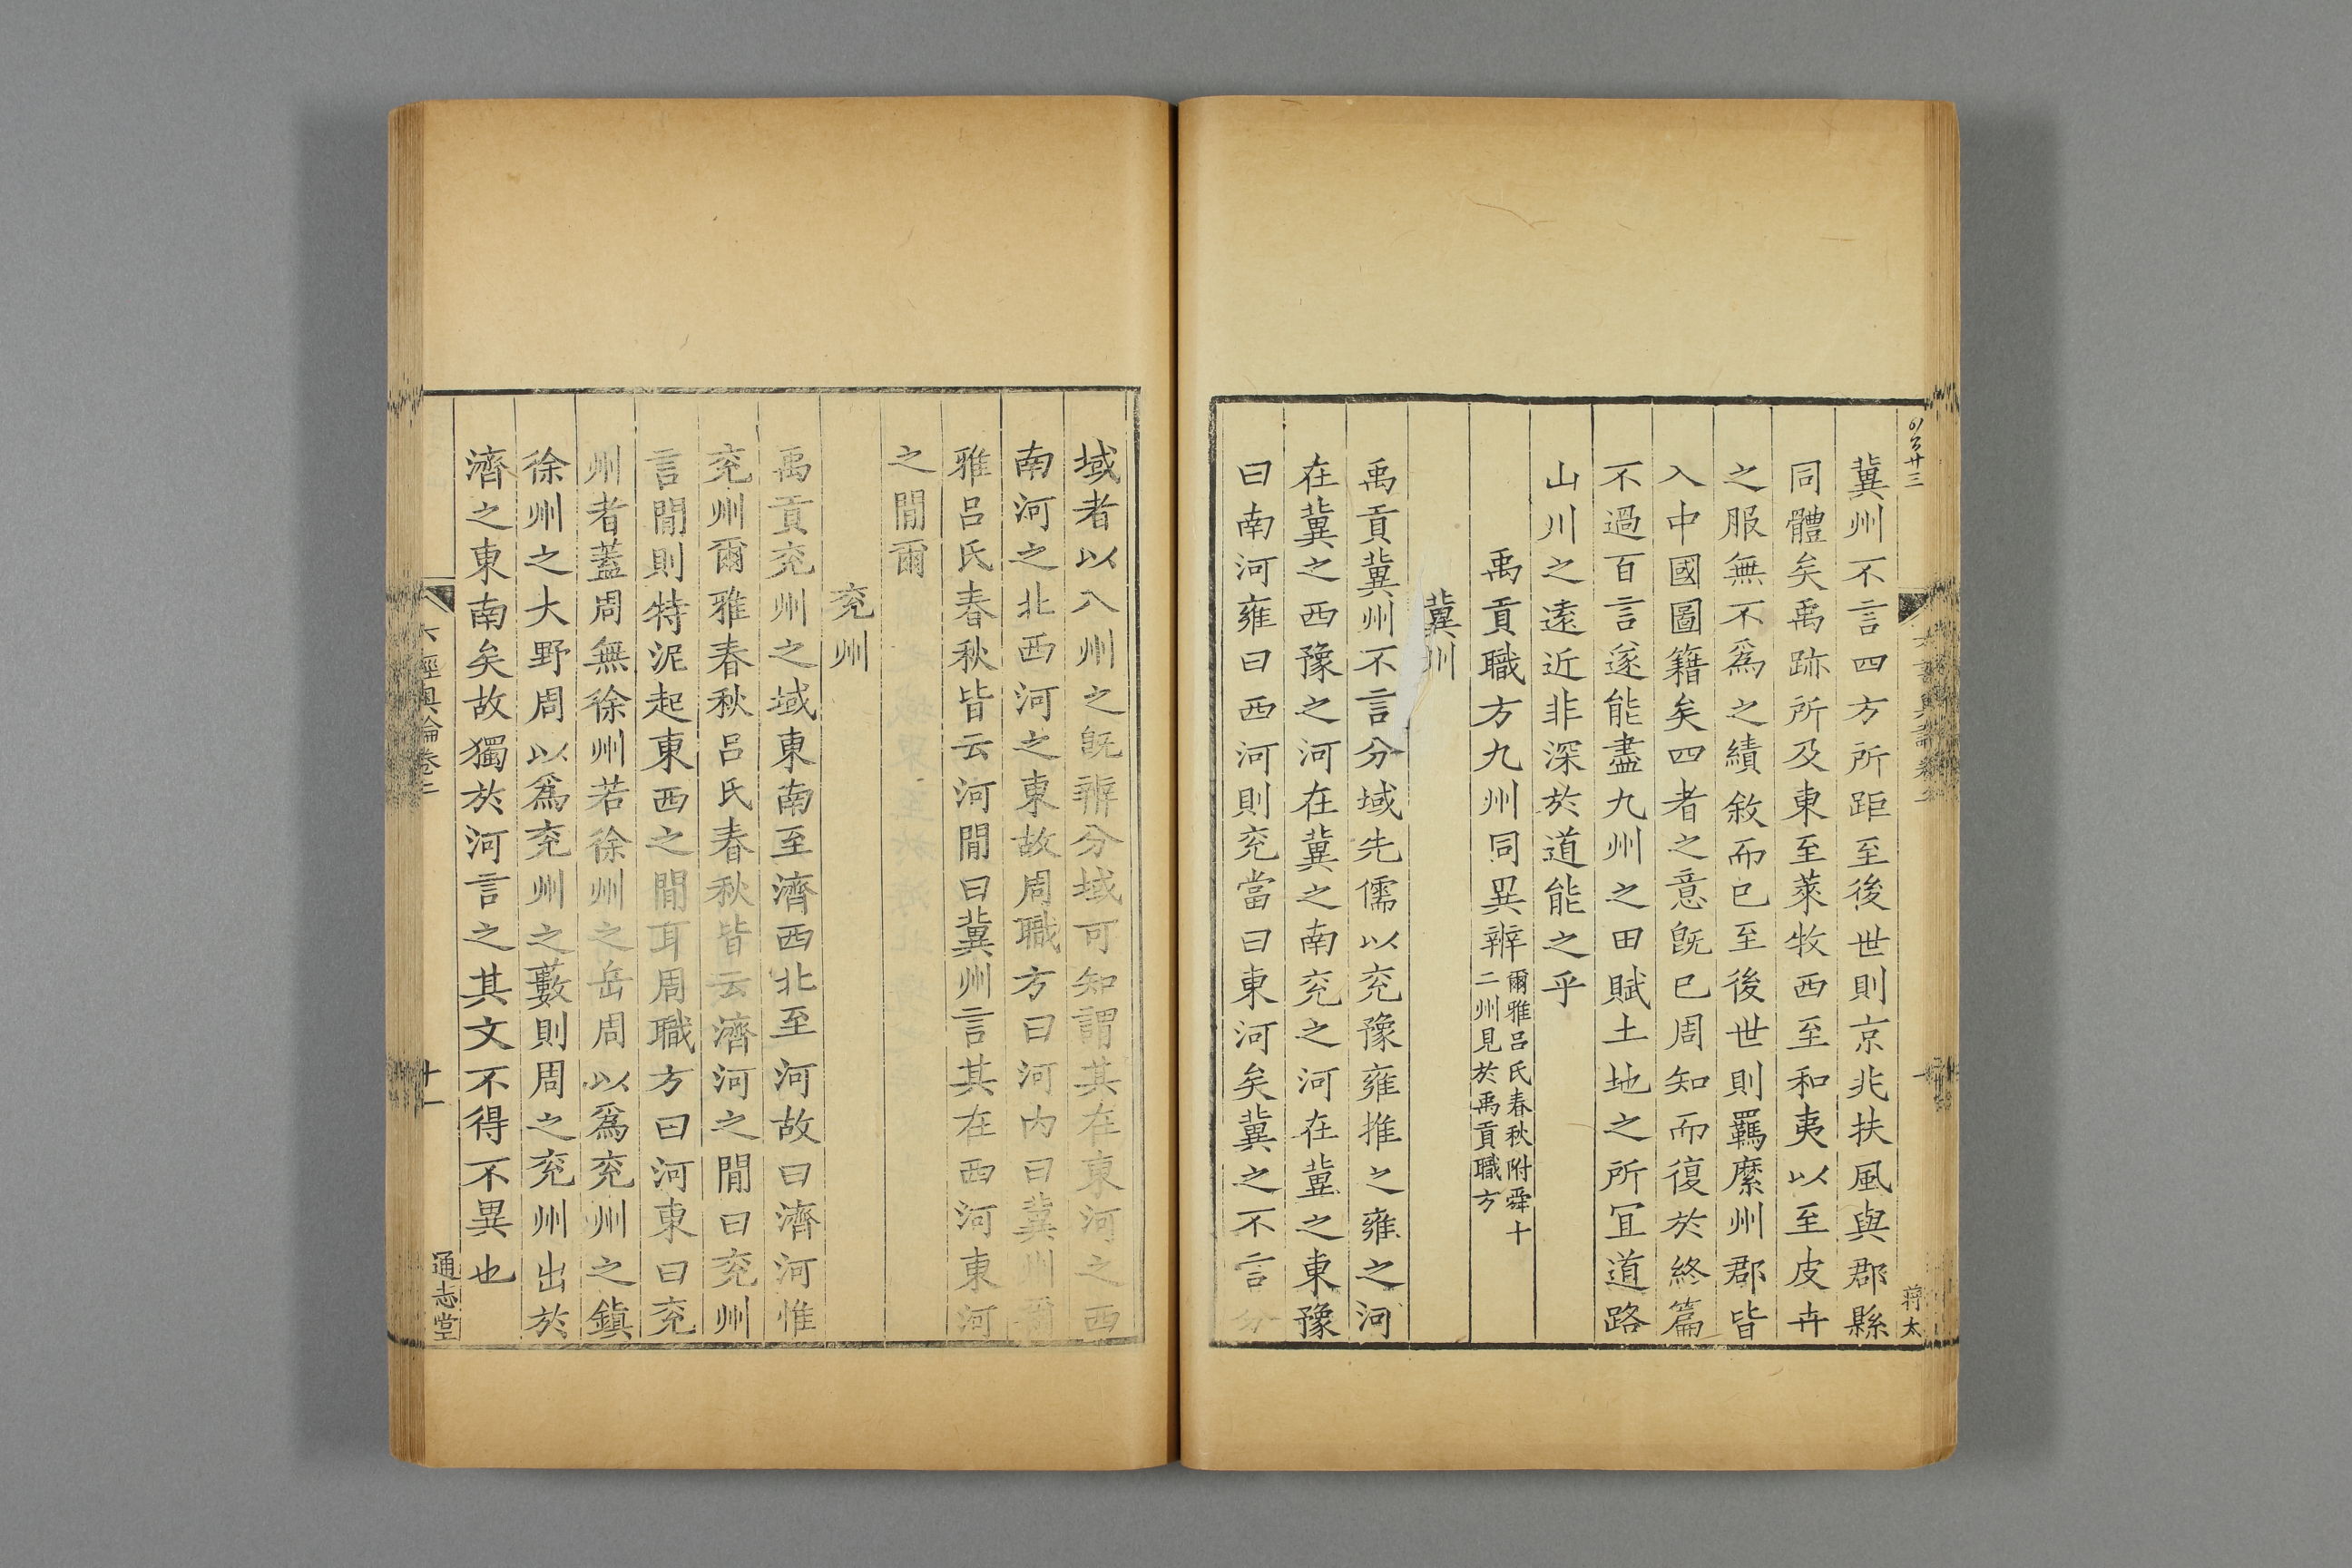 冀州不言四方所距至後世則京兆扶風與郡縣
同體矣禹跡所及東至萊牧西至和夷以至皮卉
之服無不爲之績敘而已至後世則羈縻州郡皆
入中國圖籍矣四者之意旣已周知而復於終篇
不過百言遂能盡九州之田賦土地之所宜道路
山川之遠近非深於道能之乎
禹貢職方九州同異辨
爾雅呂氏春秋附舜十
二州見於禹貢職方
冀州
禹貢冀州不言分域先儒以兗豫雍推之雍之河
在冀之西豫之河在冀之南兗之河在冀之東豫
曰南河雍曰西河則兗當曰東河矣冀之不言分
域者以八州之旣辨分域可知謂其在東河之西
南河之北西河之東故周職方曰河內曰冀州爾
雅呂氏春秋皆云河閒曰冀州言其在西河東河
之閒爾
兗州
禹貢兗州之域東南至濟西北至河故曰濟河惟
兗州爾雅春秋呂氏春秋皆云濟河之閒曰兗州
言閒則特泥起東西之閒耳周職方曰河東曰兗
州者蓋周無徐州若徐州之岳周以爲兗州之鎭
徐州之大野周以爲兗州之藪則周之兗州出於
濟之東南矣故獨於河言之其文不得不異也
六經奧論卷三
十一
通志堂
蔣太